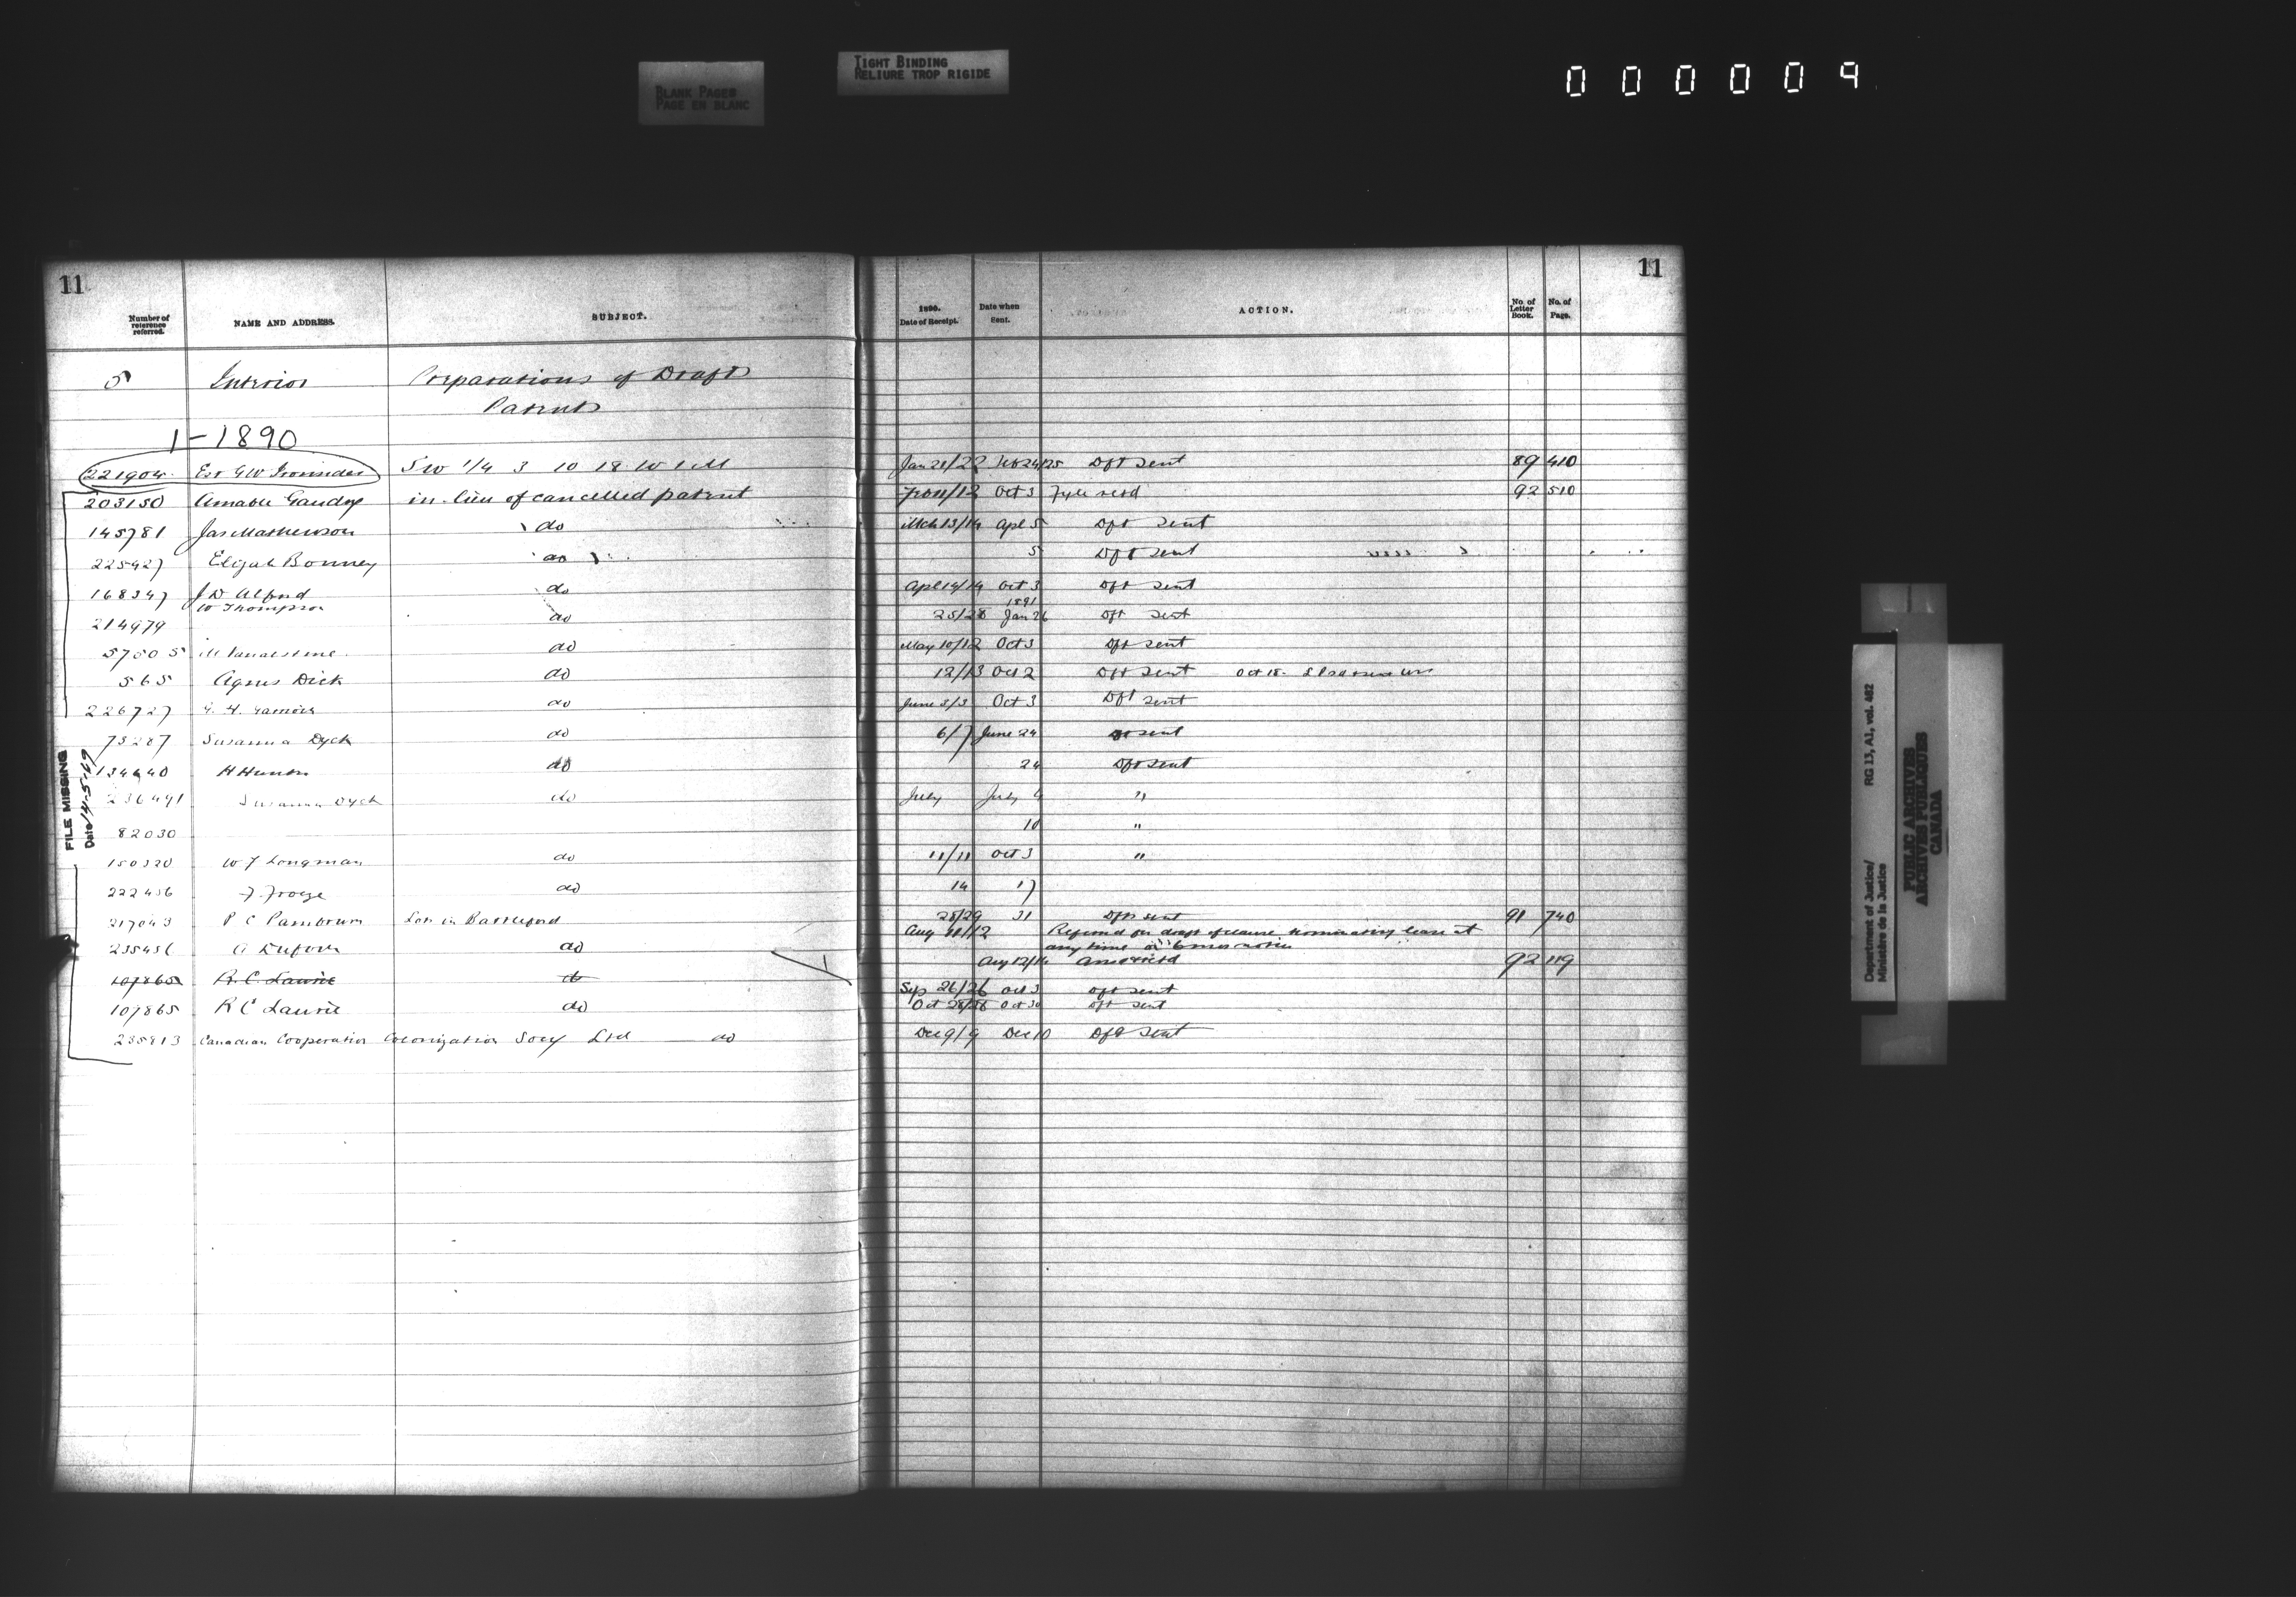 BLANK PAGES
PAGE EN BLANC
TIGHT BINDING
RELIURE TROP RIGIDE
000009
11
11
Number of reference referred.
NAME AND ADDRESS.
SUBJECT.
1890.
Date of Receipt.
Date when Sent.
ACTION.
No. of Letter Book.
No. of Page.
5 Interior Preparations of Draft
Patents
1-1890
221904 Est G W SW 1/4 3 10 18 W 1 M Jan 21/22 Feb 24/25 Dft sent 89 410
203150 Amable Gaudry in lieu of cancelled patent 11/12 Oct 3 Fyle retd 92 510
145781 Jas Mathewson do Mch 13/14 Apl 5 Dft sent
225427 Elijah Bonney do 5 Dft sent
168347 J D Alford do Apl 14/14 Oct 3 Dft sent
W Thompson 1891
214979 do 25/28 Jan 26 Dft sent
57505 do May 10/12 Oct 3 Dft sent
565 Agnes Dick do 12/13 Oct 2 Dft sent Oct 18
226727 do June 3/3 Oct 3 Dft sent
75287 Susanna Dyck do 6/7 June 24 Dft sent
134640 H do 24 Dft sent
236491 Susanna Dyck do July July 9 "
82030 10 "
150320 W J Longman do 11/11 Oct 3 "
222456 J. Froese do 14 17
217043 P C Pambrum Lots in Battleford 28/29 31 Dfts sent 91 740
235456 A Dufour do Aug 11/12 Referred for draft of clause terminating lease at
any time on 6 mos notice
Aug 12/14 Answered 92 119
107865 R. C. Laurie do Sep 26/26 Oct 3 Dft sent
107865 R C Laurie do Oct 28/28 Oct 30 Dft sent
235813 Canadian Cooperation Colonization Socy Ltd do Dec 9/9 Dec 10 Dft sent
FILE MISSING
Date 14-5-69
Department of Justice/
Ministère de la Justice
RG 13, A1, vol. 482
PUBLIC ARCHIVES
ARCHIVES PUBLIQUES
CANADA